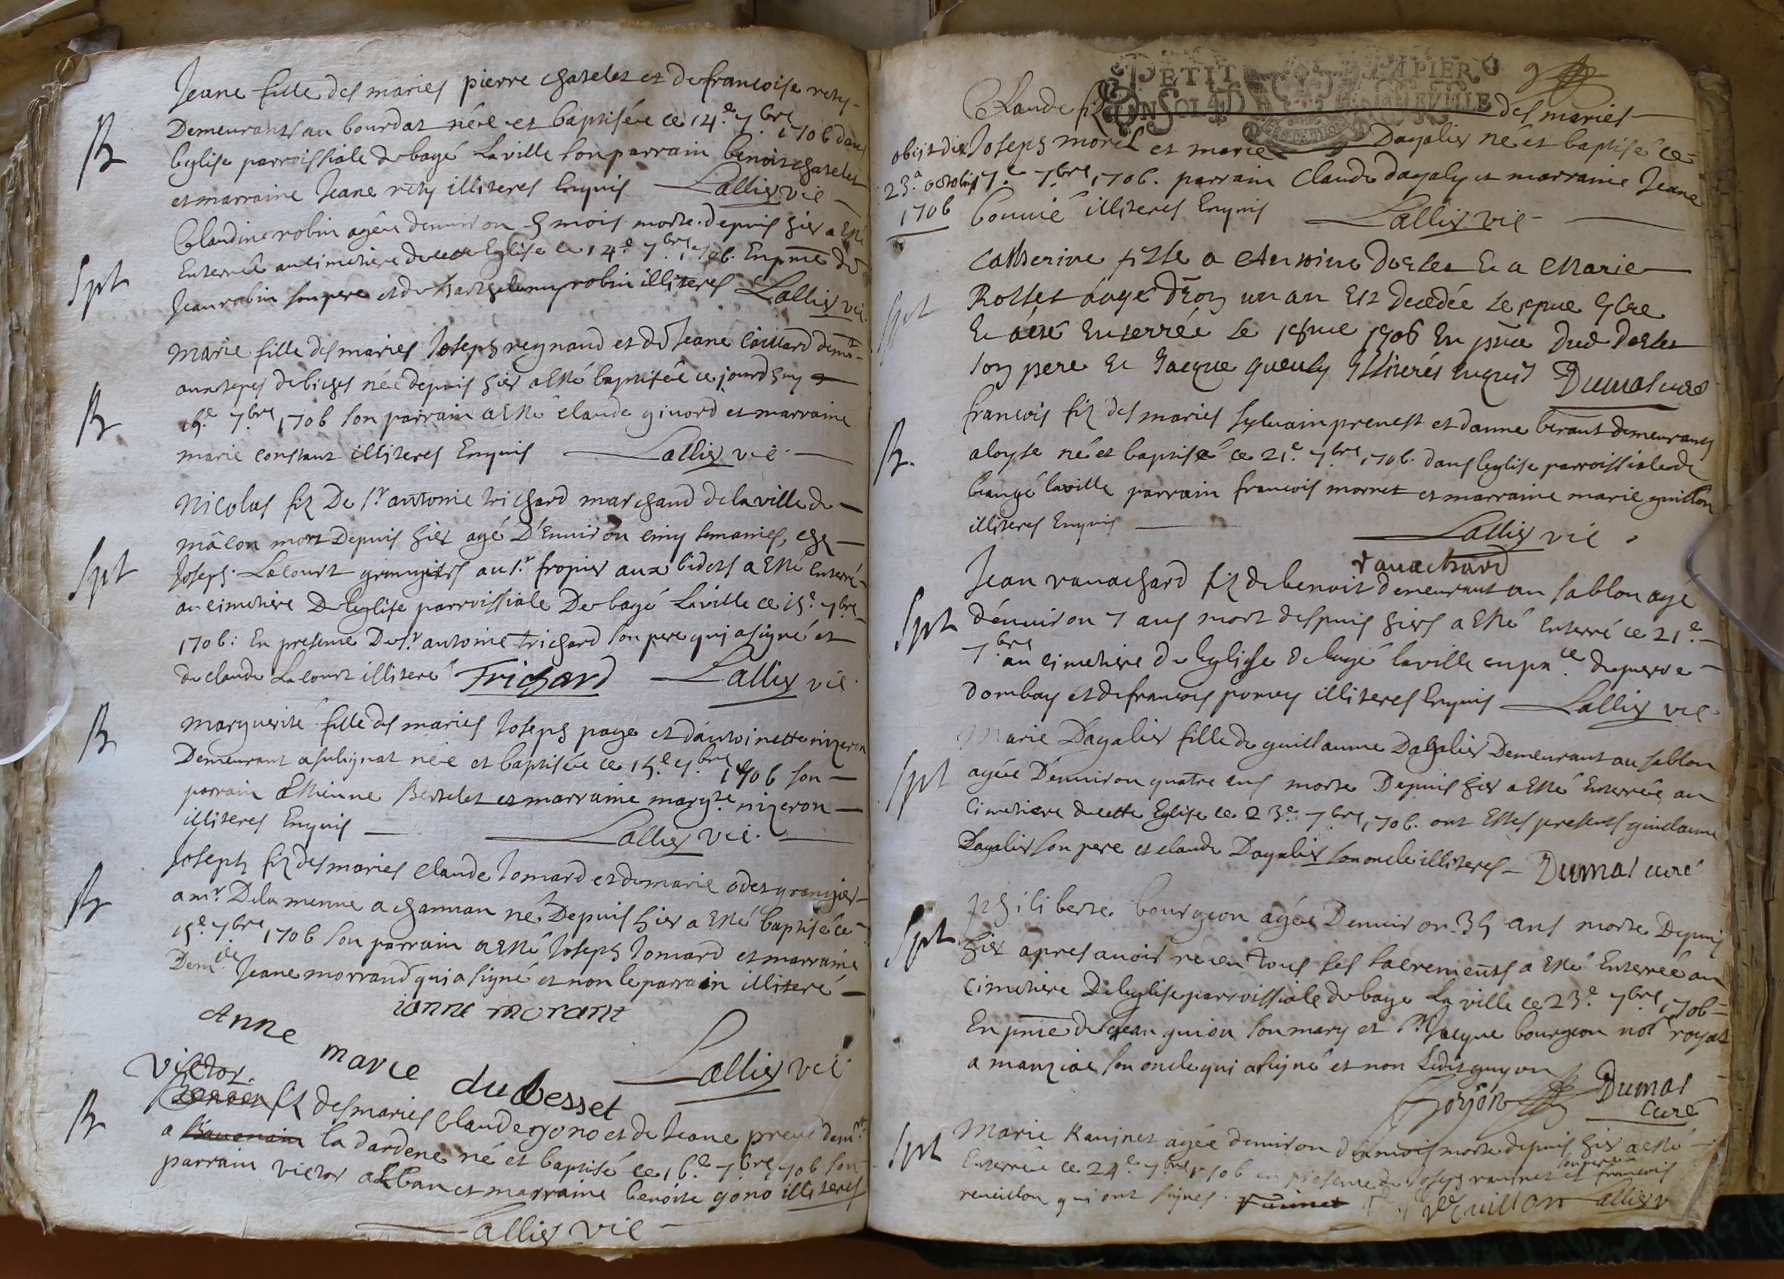 Jeane fille des mariés pierre chatelet et de francoise rety
B
Demeurants au bourdat néé et baptiséé ce 14.e 7.bre 1706 dans
leglise parroissiale de bagé laville son parrain benoit chatelet
et marraine Jeane rety illiteres Enquis Lallier vic
Claudine robin agéé denviron 5 mois morte depuis hier a esté
Spt
Enterréé au cimetiere de cette Eglise ce 14.e 7.bre 1706. En pnce de
Jean robin son pere et de robin illiteres Lallier vic
Marie fille des mariés Joseph reynaud et de Jeane Caillard demt
aux de biches néé depuis hier a esté baptiséé ce jourdhuy
B
15.e 7.bre 1706 son parrain a esté claude givord et marraine
marie constant illiteres Enquis Lallier vic.
Nicolas fiz De Sr antoine trichard marchand de la ville de
mâcon mort Depuis hier agé D'Environ cinq semaines, chez
Spt
Joseph Lacourt granger au Sr. fropier aux bidets a esté Enterré
au cimetiere De leglise parroissiale De bagé Laville ce 15.e 7.bre
1706: En presence De Sr antoine trichard son pere qui a signé et
de claude Lacourt illiteré Trichard Lallier vic.
B
Marguerite fille des mariés Joseph page et d'antoinette nizeron
Demeurant a sulignat néé et baptiséé ce 15.e 7.bre 1706 son
parrain Estienne Bertelet et marraine margte nizeron
illiteres Enquis Lallier vic.
Joseph fiz des mariés claude Jomard et de marie odet granger
B
a mr. Delamenue a chanman né Depuis hier a esté baptisé ce
15.e 7.bre 1706 son parrain a esté Joseph Jomard et marraine
Dem.lle Jeane morrand qui a signé et non le parrain illiteré
ianne morant
Anne marie dubesset
Lallier vic
Victor
B
fiz des mariés Claude gono et de Jeane demt
a la dardene né et baptisé ce 16.e 7.bre 1706 son
parrain victor alban et marraine benoite gono illiteres
Lallier vic
PETIT PAPIER
Claude fiz des mariés
obiit die
23.a octobris
1706
Joseph morel et marie Dagalier né et baptisé ce
17.e 7.bre 1706. parrain Claude dagaly et marraine Jeane
bonnié illiteres Enquis Lallier vic
Catherine fille a Antoine Deslet Et a Marie
Spt
Rollet áagé d'Eon un an Est decedée Le 7bre
Et a été Enterrée Le 1706 En pnce Dud Deslet
son pere Et Jacque queuly Illitérés enquis Dumas curé
B.
francois fiz des mariés sylvain prenest et danne beraut demeurants
aloyse né et baptisé ce 21.e 7.bre 1706. dans leglise parroissiale de
baugé laville parrain francois mornet et marraine marie guillon
illiteres Enquis Lallier vic.
ravachard
Jean ravachard fiz de benoit demeurant au sablon agé
Spt
d'environ 7 ans mort despuis hiers a esté Enterré ce 21.e
7.bre au cimetiere de leglise de bagé laville en pnce. de pierre
dombay et de francois pomey illiteres Enquis Lallier vic.
Marie Dagalier fille de guillaume Dagalier Demeurant au sablon
Spt
agéé D'environ quatre ans morte Depuis hier a esté Enterréé au
Cimetiere de cette Eglise ce 23.e 7.bre 1706. ont Estes presents guillaume
Dagalier son pere et claude Dagalier son oncle illiteres Dumas curé
philiberte bourgeon agéé Denviron 35 ans morte Depuis
Spt
hier apres avoir receu tous ses sacrements a esté Enterréé au
Cimetiere De leglise parroissiale de bagé La ville ce 23.e 7.bre 1706
En pnce de jean guion son mary et Me Jacque bourgeon nore royal
a manziat son oncle qui a signé et non Ledit guyon
Dumas
curé
Spt
Marie Raninet agéé denviron dix mois morte depuis hier a esté
Enterréé ce 24.e 7.bre 1706 en presence de Joseph raninet son pere et francois
reveillon qui ont signés. Raninet Reveillon Lallier v